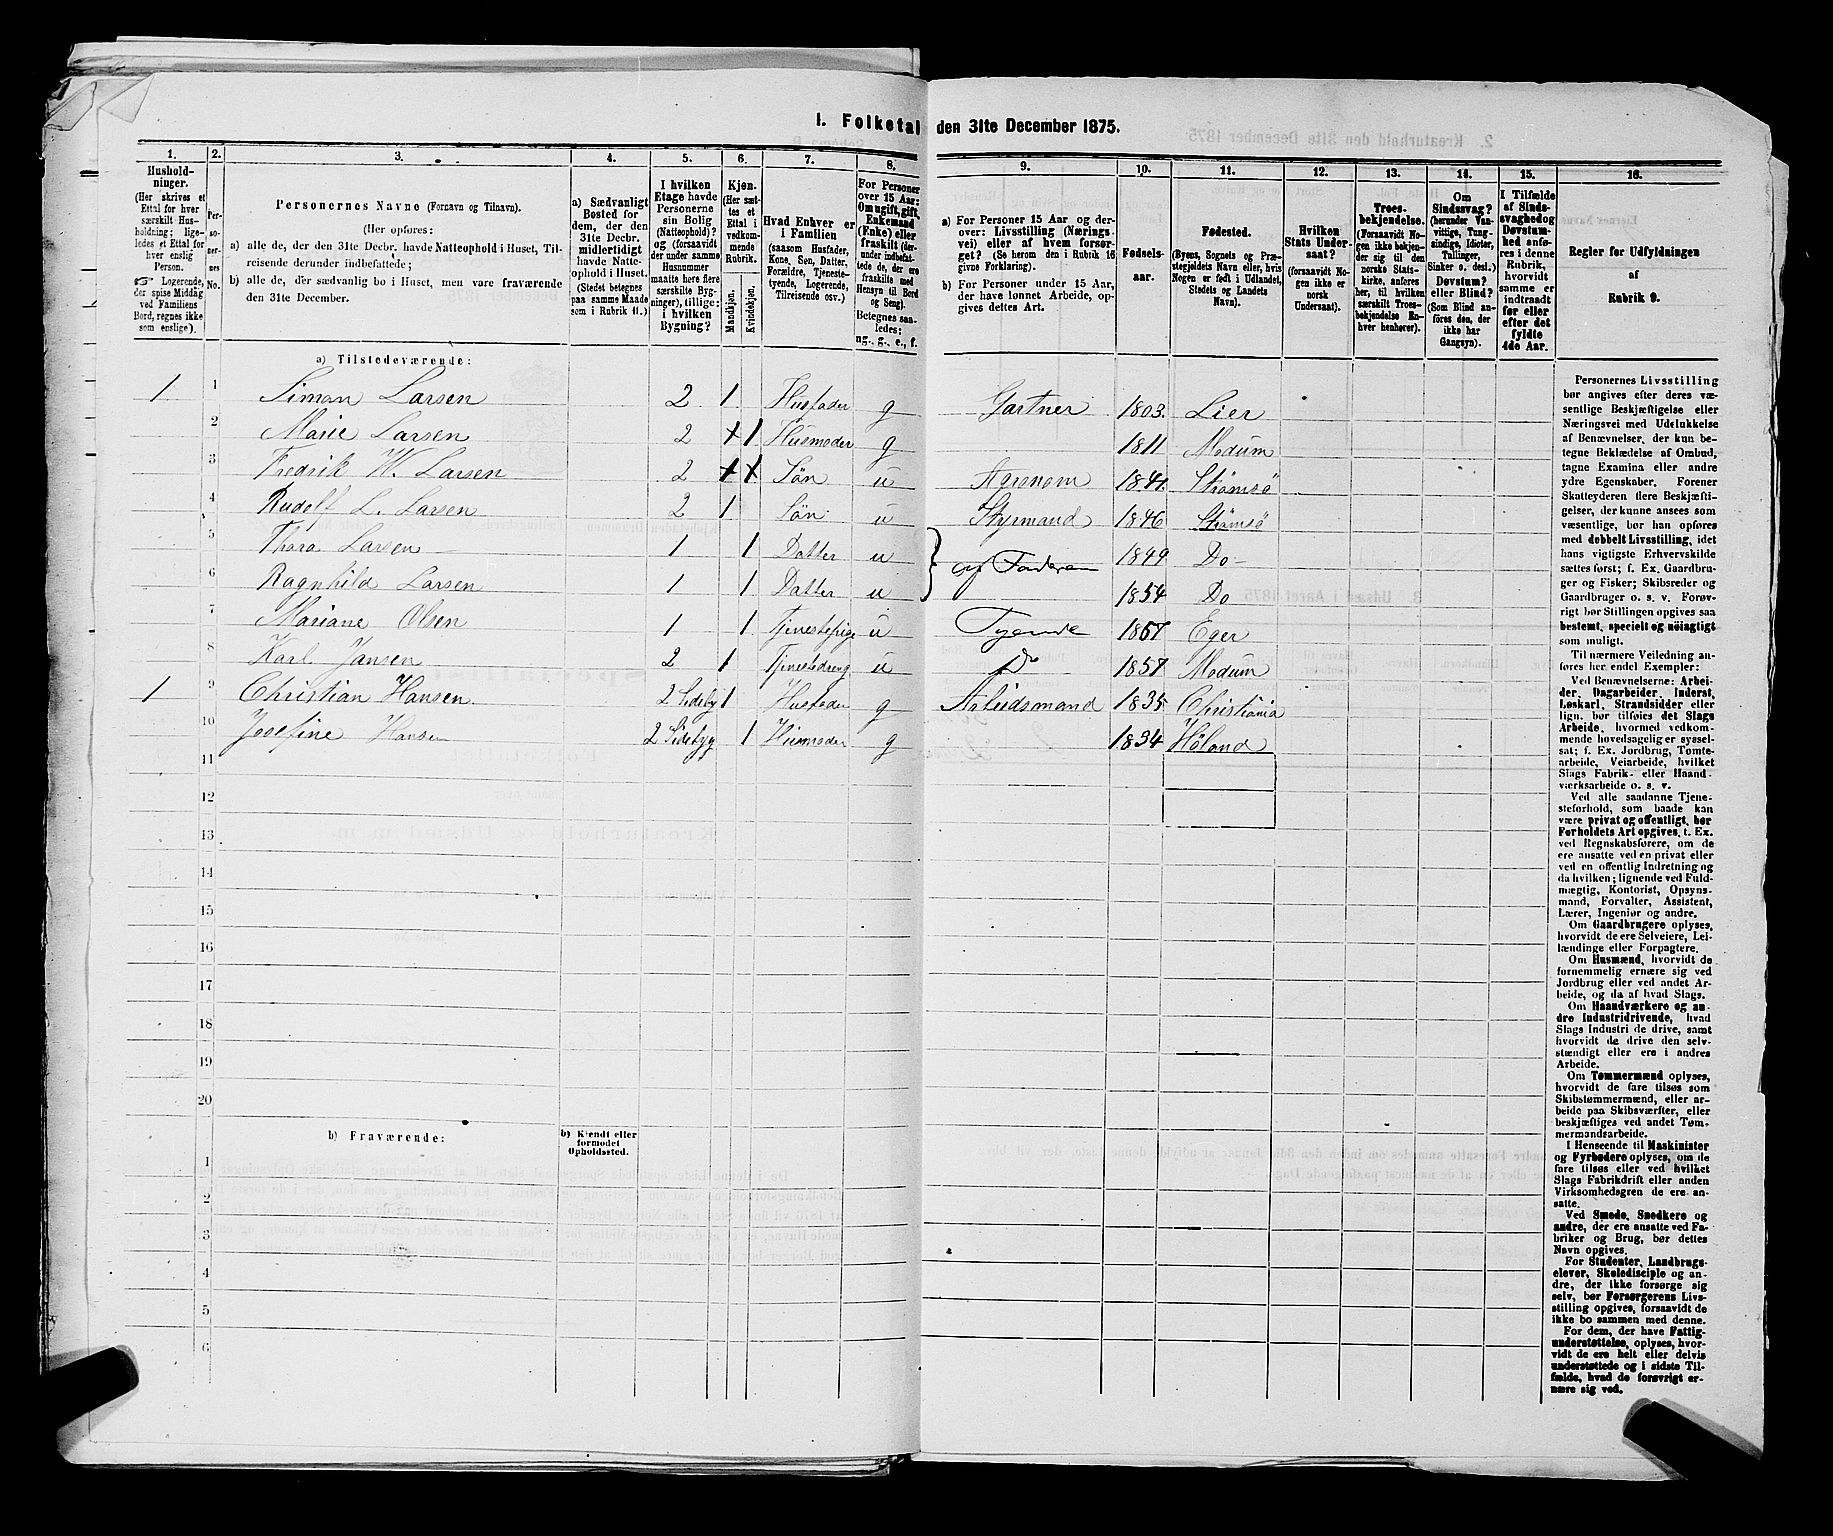 1. Folketal den 31te December 1875.
1. 2. 3. 4. 5. 6. 7. 8. 9. 10. 11. 12. 13. 14. 15. 16.
Hushold-
ninger.
(Her skrives et
Ettal for hver
særskilt Hus-
holdning; lige-
ledes et Ettal for
hver enslig
Person.
☞ Logerende,
der spise Middag
ved Familiens
Bord, regnes ikke
som enslige).
Per-
so-
ner-
nes
No.
Personernes Navne (Fornavn og Tilnavn).
(Her opføres:
a) alle de, der den 31te Decbr. havde Natteophold i Huset, Til-
reisende derunder indbefattede;
b) alle de, der sædvanlig bo i Huset, men vare fraværende
den 31te December.
a) Sædvanligt
Bosted for
dem, der den
31te Decbr.
midlertidigt
havde Natte-
ophold i Huset.
(Stedet betegnes
paa samme Maade
som i Rubrik 11.)
I hvilken
Etage havde
Personerne
sin Bolig
(Natteophold)?
og (forsaavidt
der under samme
Husnummer
maatte høre flere
særskilte Byg-
ninger), tillige:
i hvilken
Bygning?
Kjøn.
(Her sæt-
tes et
Ettal i
vedkom-
mende
Rubrik.
Mandkjøn.
Kvindekjøn.
Hvad Enhver er
i Familien
(saasom Husfader,
Kone, Søn, Datter,
Forældre, Tjeneste-
tyende, Logerende,
Tilreisende osv.)
For Personer
over 15 Aar:
Om ugift, gift,
Enkemand
(Enke) eller
fraskilt (der-
under indbefat-
tede de, der ere
fraskilte med
Hensyn til Bord
og Seng).
Betegnes saa-
ledes:
ug., g., e., f.
a) For Personer 15 Aar og der-
over: Livsstilling (Nærings-
vei) eller af hvem forsør-
get? (Se herom den i Rubrik 16
givne Forklaring).
b) For Personer under 15 Aar,
der have lønnet Arbeide, op-
gives dettes Art.
Fødsels-
aar.
Fødested.
(Byens, Sognets og Præ-
stegjeldets Navn eller, hvis
Nogen er født i Udlandet,
Stedets og Landets
Navn).
Hvilken
Stats Under-
saat?
(forsaavidt No-
gen ikke er
norsk
Undersaat).
Troes-
bekjendelse.
(Forsaavidt No-
gen ikke bekjen-
der sig til den
norske Stats-
kirke, anføres
her, til hvilken
særskilt Troes-
bekjendelse En-
hver henhører).
Om
Sindssvag?
(herunder Van-
vittige, Tung-
sindige, Idioter,
Tullinger,
Sinker o. desl.)
Døvstum?
eller Blind?
(Som Blind an-
føres den, der
ikke har
Gangsyn).
I Tilfælde
af Sinds-
svaghed og
Døvstum-
hed anfø-
res i denne
Rubrik,
hvorvidt
samme er
indtraadt
før eller
efter det
fyldte
4de Aar.
Regler for Udfyldningen
af
Rubrik 9.
a) Tilstedeværende:
1 1 Simon Larsen 2 1 Husfader g Gartner 1803 Lier
2 Marie Larsen 2 1 Husmoder g 1811 Modum
3 Fredrik W. Larsen 2 Sön u Agronom 1841 Strömsö
4 Rudolf L. Larsen 2 1 Sön u Styrmand 1846 Strömsö
5 Thora Larsen 1 1 Datter u af Faderen 1849 Do
6 Ragnhild Larsen 1 1 Datter u 1854 Do
7 Mariane Olsen 1 1 Tjenestepige u Tyende 1857 Eger
8 Karl Jansen 2 1 Tjenestedreng u Do 1857 Modum
1 9 Christian Hansen 2 Sideby 1 Husfader g Arbeidsmand 1835 Christiania
10 Josefine Hansen 2 Sidebyg 1 Husmoder g 1834 Höland
11
12
13
14
15
16
17
18
19
20
b) Fraværende:
b) Kjendt eller
formodet
Opholdssted.
1
2
3
4
5
6
Personernes Livsstilling
bør angives efter deres væ-
sentlige Beskjæftigelse eller
Næringsvei med Udelukkelse
af Benævnelser, der kun be-
tegne Beklædelse af Ombud,
tagne Examina eller andre
ydre Egenskaber. Forener
Skatteyderen flere Beskjæfti-
gelser, der kunne ansees som
væsentlige, bør han opføres
med dobbelt Livsstilling, idet
hans vigtigste Erhvervskilde
sættes først; f. Ex. Gaardbru-
ger og Fisker; Skibsreder og
Gaardbruger o. s. v. Forøv-
rigt bør Stillingen opgives saa
bestemt, specielt og nöiagtigt
som muligt.
Til nærmere Veiledning an-
føres her endel Exempler:
Ved Benævnelserne: Arbei-
der, Dagarbeider, Inderst,
Løskarl, Strandsidder eller
lign. bør tilføies det Slags
Arbeide, hvormed vedkom-
mende hovedsagelig er syssel-
sat; f. Ex. Jordbrug, Tomte-
arbeide, Veiarbeide, hvilket
Slags Fabrik- eller Haand-
værksarbeide o. s. v.
Ved alle saadanne Tjene-
steforhold, som baade kan
være privat og offentligt, bør
Forholdets Art opgives, t. Ex.
ved Regnskabsførere, om de
ere ansatte ved en privat eller
ved en offentlig Indretning og
da hvilken; lignende ved Fuld-
mægtig, Kontorist, Opsyns-
mand, Forvalter, Assistent,
Lærer, Ingeniør og andre.
Om Gaardbrugere oplyses,
hvorvidt de ere Selveiere, Lei-
lændinge eller Forpagtere.
Om Husmænd, hvorvidt de
fornemmelig ernære sig ved
Jordbrug eller ved andet Ar-
beide, og da af hvad Slags.
Om Haandværkere og an-
dre Industridrivende, hvad
Slags Industri de drive, samt
hvorvidt de drive den selv-
stændigt eller ere i andres
Arbeide.
Om Tømmermænd oplyses,
hvorvidt de fare tilsøs som
Skibstømmermænd, eller ar-
beide paa Skibsværfter, eller
beskjæftiges ved andet Tøm-
mermandsarbeide.
I Henseende til Maskinister
og Fyrbødere oplyses, om de
fare tilsøs eller ved hvilket
Slags Fabrikdrift eller anden
Virksomhedsgren de ere an-
satte.
Ved Smede, Snedkere og
andre, der ere ansatte ved Fa-
briker og Brug, bør dettes
Navn opgives.
For Studenter, Landbrugs-
elever, Skoledisciple og an-
dre, der ikke forsørge sig
selv, bør Forsørgerens Livs-
stilling opgives, forsaavidt de
ikke bo sammen med denne.
For dem, der have Fattig-
understøttelse, oplyses, hvor-
vidt de ere helt eller delvis
understøttede og i sidste Til-
fælde, hvad de forøvrigt er-
nære sig ved.